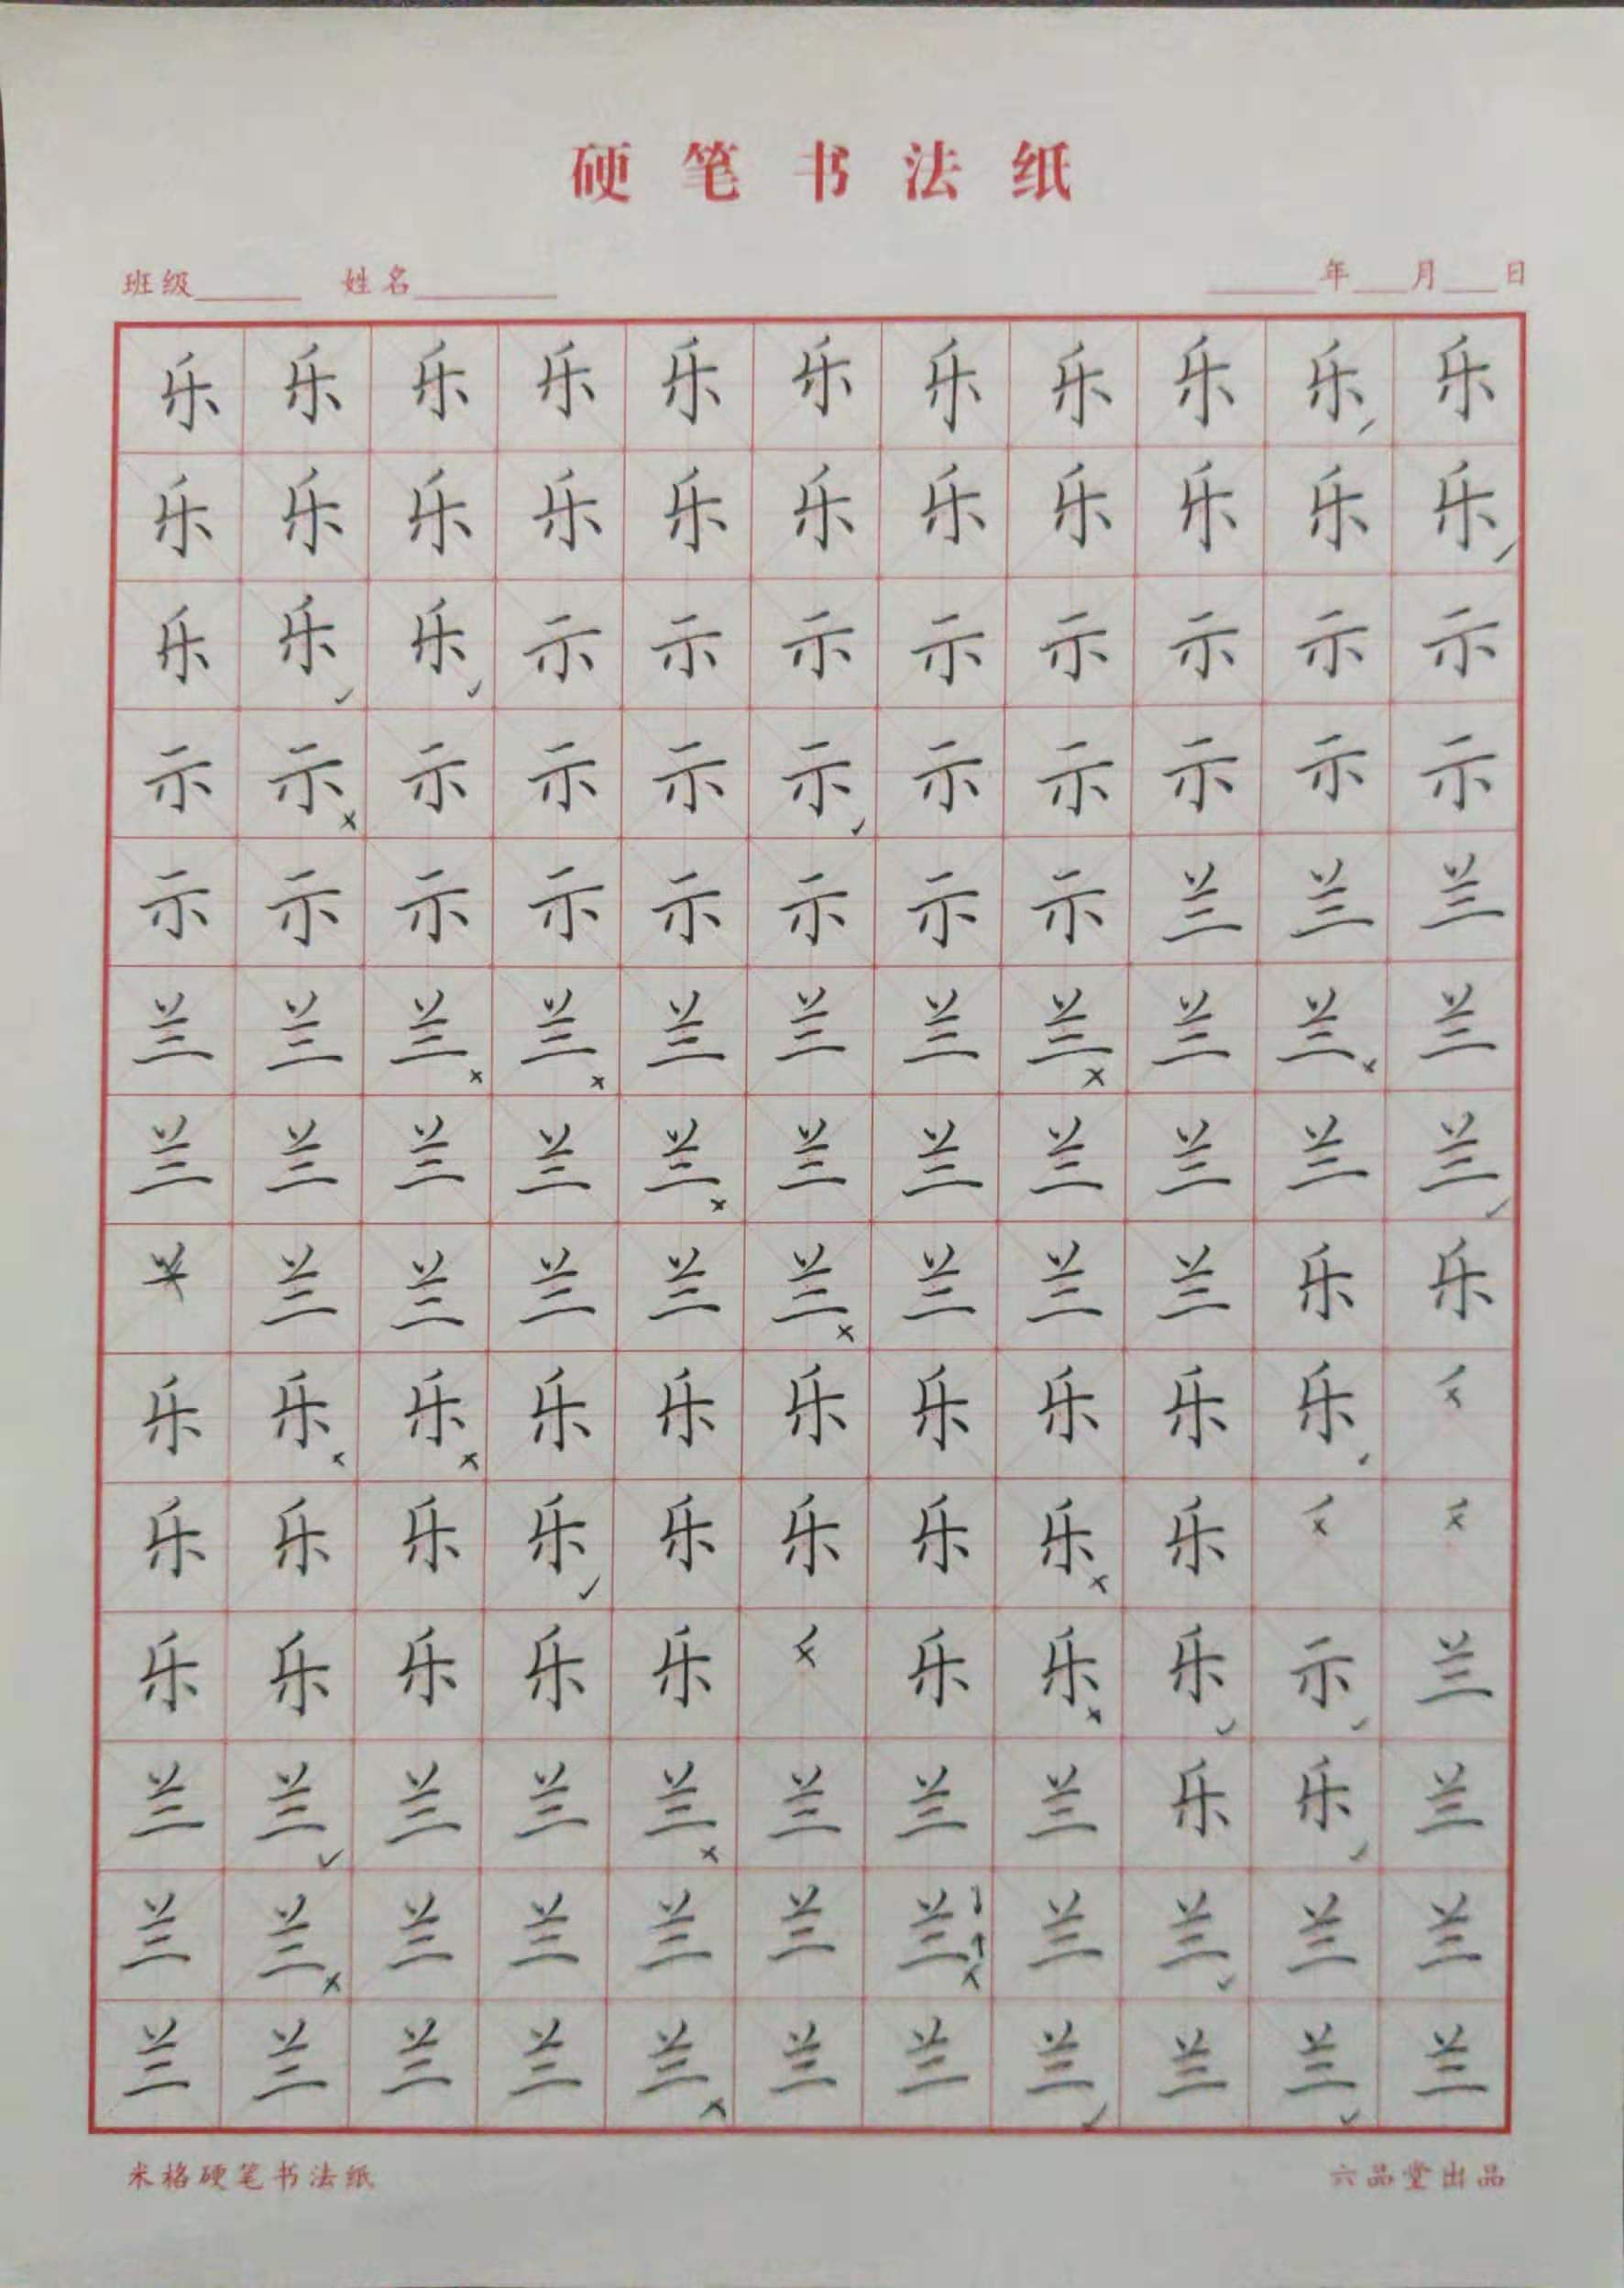 硬笔书法纸
班级 姓名 年 月 日
乐乐乐乐乐乐乐乐乐乐乐
乐乐乐乐乐乐乐乐乐乐乐
乐乐乐示示示示示示示示
示示示示示示示示示示示
示示示示示示示示兰兰兰
兰兰兰兰兰兰兰兰兰兰兰
兰兰兰兰兰兰兰兰兰兰兰
兰兰兰兰兰兰兰兰乐乐
乐乐乐乐乐乐乐乐乐乐
乐乐乐乐乐乐乐乐乐
乐乐乐乐乐乐乐乐示兰
兰兰兰兰兰兰兰兰乐乐兰
兰兰兰兰兰兰兰兰兰兰兰
兰兰兰兰兰兰兰兰兰兰兰
米格硬笔书法纸 六品堂出品